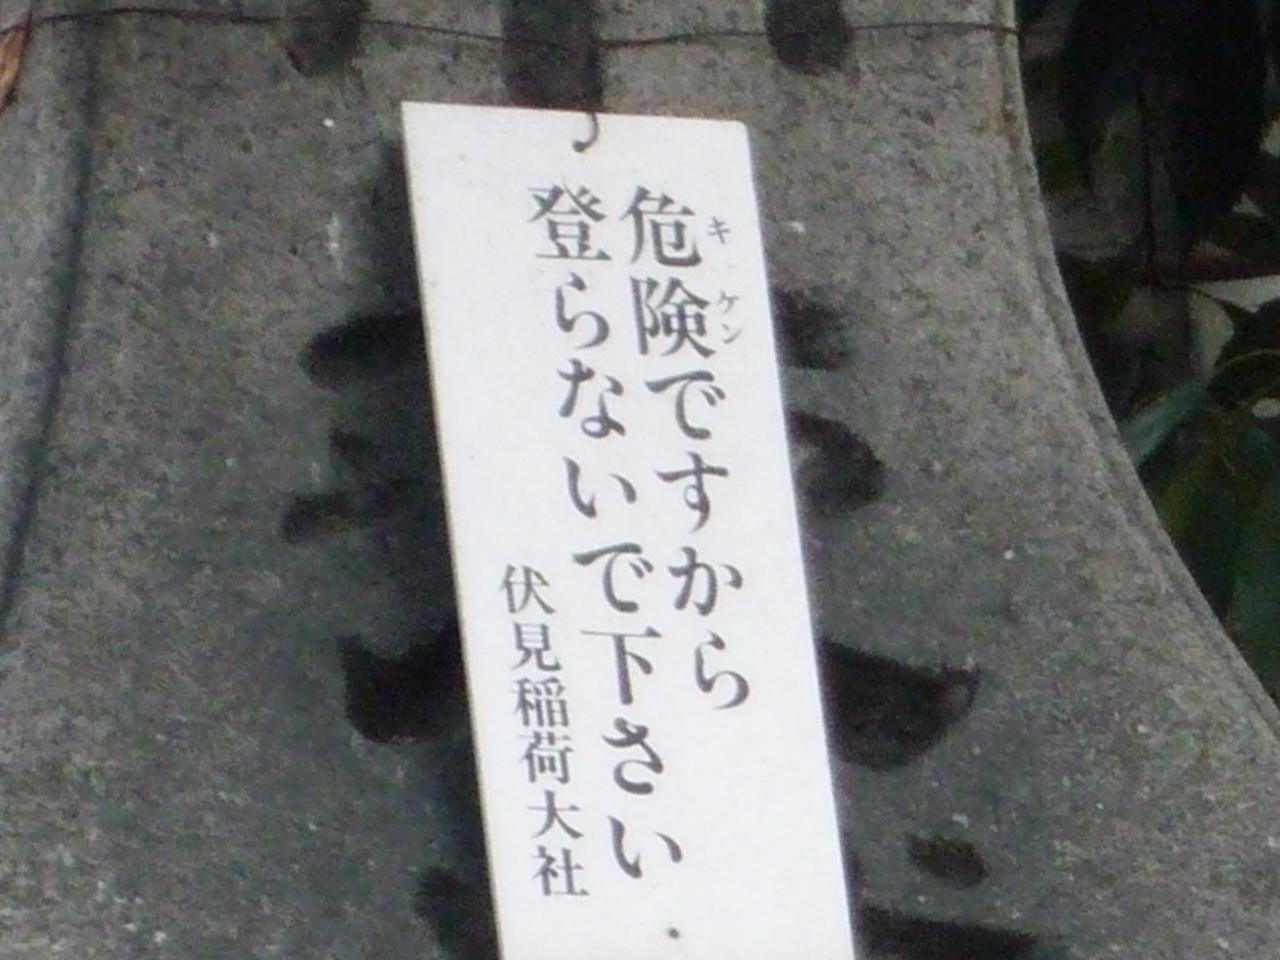 危険ですから
キケン
登らないで下さい
伏見稲荷大社